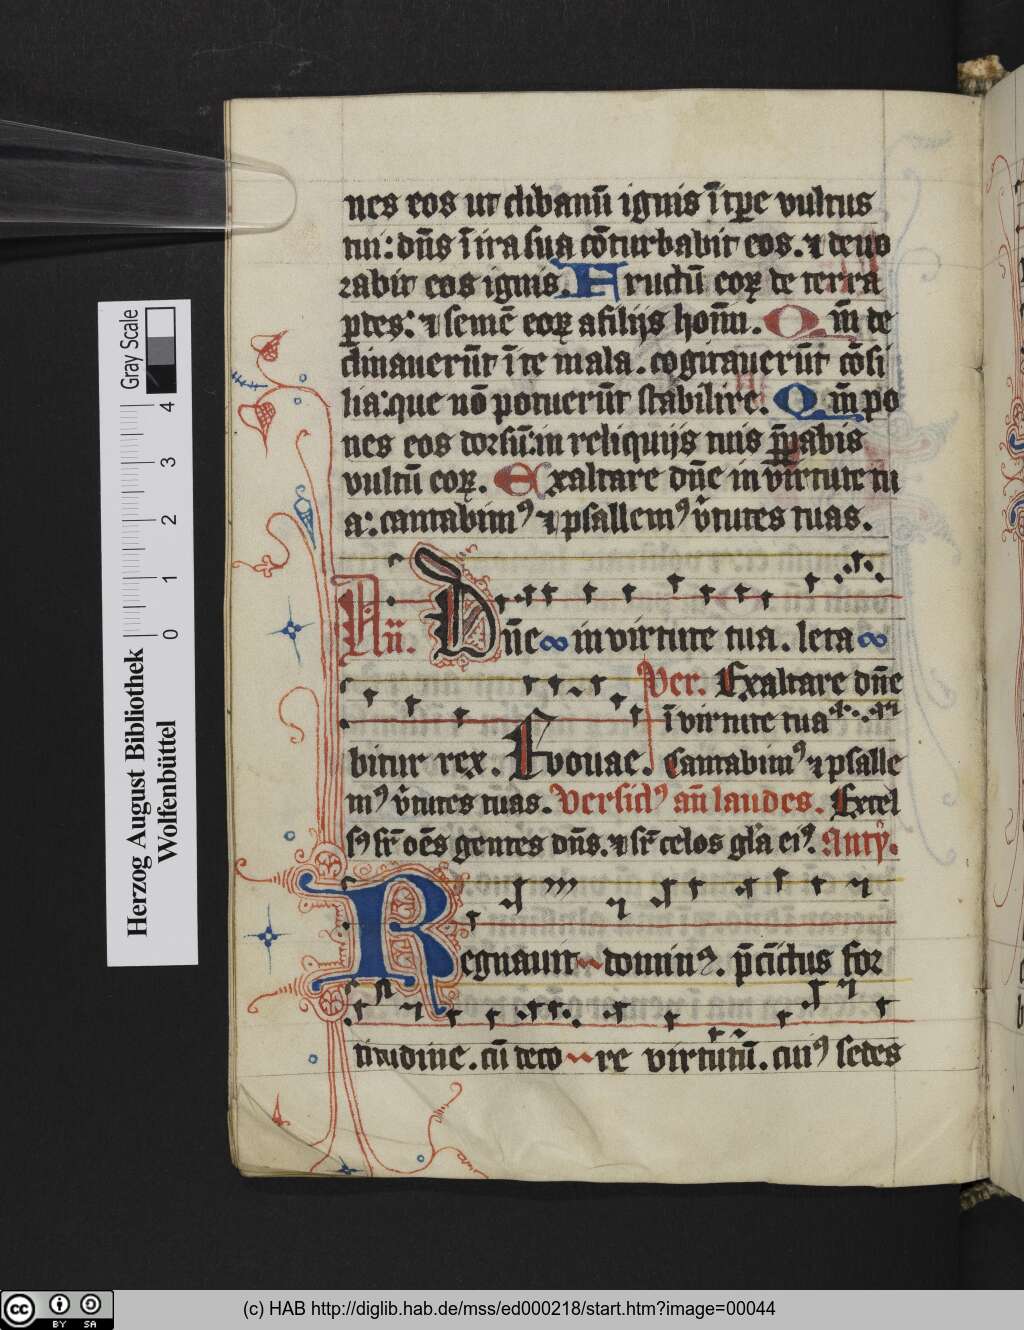 nes eos ut clibanū ignis ī tꝑe vultus
tui: dn̄s ī ira sua cōturbabit eos. ⁊ deuo
rabit eos ignis. Fructū eoꝝ de terra
ꝑdes: ⁊ semē eoꝝ a filijs hoīm. Qm̄ de
clinauerūt ī te mala. cogitauerūt cōsi
lia: que nō potuerūt stabilire. Qm̄ po
nes eos dorsū: in reliquijs tuis p̄ꝑabis
vultū eoꝝ. Exaltare dn̄e in virtute tu
a: cantabimꝰ ⁊ psallemꝰ v̓tutes tuas.
An̄. Dn̄e in virtute tua. leta
Ver. Exaltare dn̄e
ī virtute tua
bitur rex. Evouae. Cantabimꝰ ⁊ psalle
mꝰ v̓tutes tuas. Versiclꝰ an̄ laudes. Excel
sꝰ sr̄ oēs gentes dn̄s. ⁊ sr̄ celos gl̓a eiꝰ. Anty.
Regnauit dominꝰ. p̄cīctus for
titudine. cū deco re virtutū. cuiꝰ sedes
Gray Scale
4
3
2
1
0
Herzog August Bibliothek
Wolfenbüttel
cc
BY SA
(c) HAB http://diglib.hab.de/mss/ed000218/start.htm?image=00044